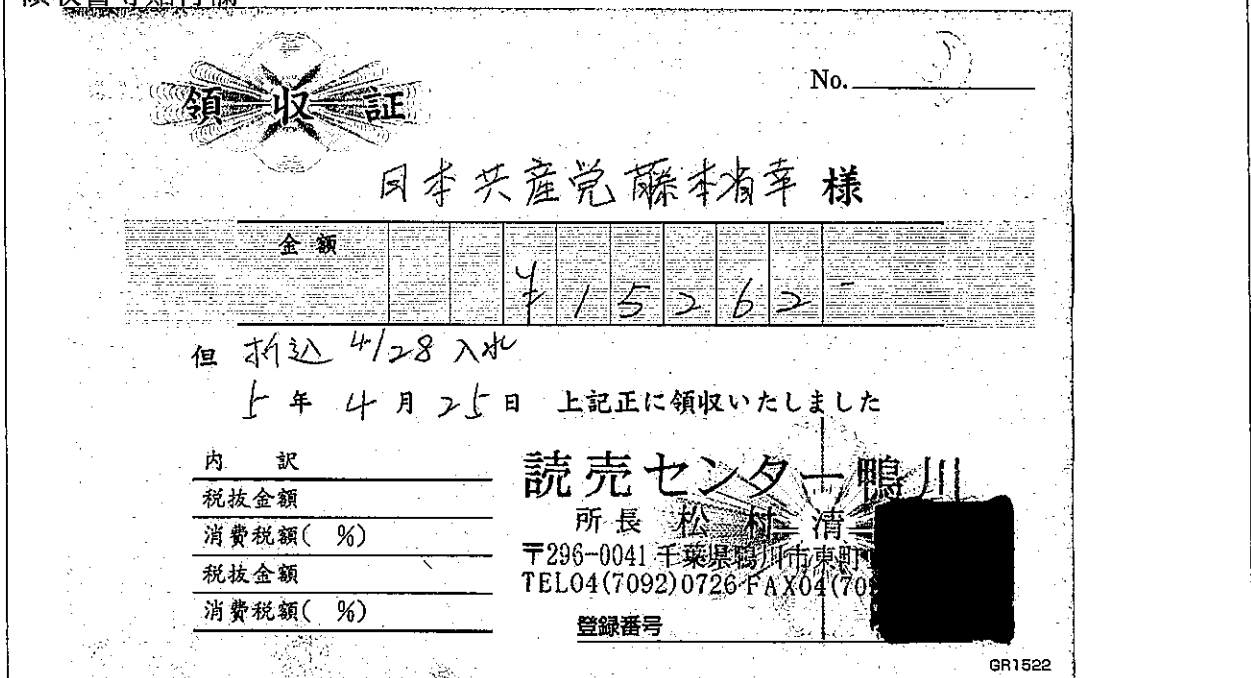 領収書等貼付欄
領収証
No.
日本共産党 藤本省幸 様
金額 ¥15262-
但 折込 4/28 入れ
5年4月25日 上記正に領収いたしました
内訳
税抜金額
消費税額( %)
税抜金額
消費税額( %)
読売センター鴨川
所長 松村 清
〒296-0041 千葉県鴨川市東町
TEL04(7092)0726 FAX04(70
登録番号
GR1522